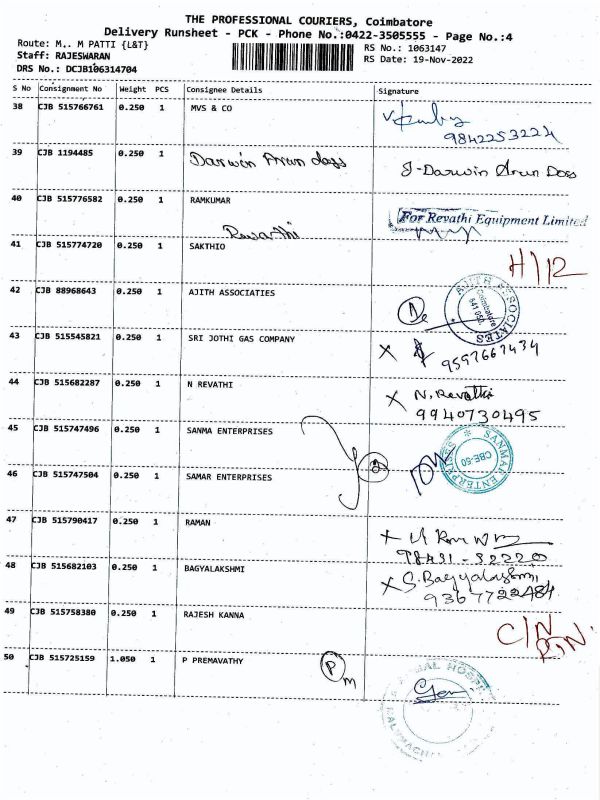 THE PROFESSIONAL COURIERS, Coimbatore
Delivery Runsheet - PCK - Phone No.:0422-3505555 - Page No.:4
Route: M.. M PATTI {L&T} RS No.: 1063147
Staff: RAJESWARAN RS Date: 19-Nov-2022
DRS No.: DCJB106314704
S No Consignment No Weight PCS Consignee Details Signature
38 CJB 515766761 0.250 1 MVS & CO
9842253224
39 CJB 1194485 0.250 1 Darwin Arun doss J-Darwin Arun Doss
40 CJB 515776582 0.250 1 RAMKUMAR
For Revathi Equipment Limited
Revathi
41 CJB 515774720 0.250 1 SAKTHIO
H/12
42 CJB 88968643 0.250 1 AJITH ASSOCIATIES
AJITH ASSOCIATES
Coimbatore
43 CJB 515545821 0.250 1 SRI JOTHI GAS COMPANY
9597667434
44 CJB 515682287 0.250 1 N REVATHI
N. Revathi
9940730495
45 CJB 515747496 0.250 1 SANMA ENTERPRISES
SANMAR ENTERPRISES
CBE-50
46 CJB 515747504 0.250 1 SAMAR ENTERPRISES
47 CJB 515790417 0.250 1 RAMAN
98431-32220
48 CJB 515682103 0.250 1 BAGYALAKSHMI
S. Bagyalakshmi
9367722484
49 CJB 515758380 0.250 1 RAJESH KANNA
C/N
P.N.
50 CJB 515725159 1.050 1 P PREMAVATHY
P
m